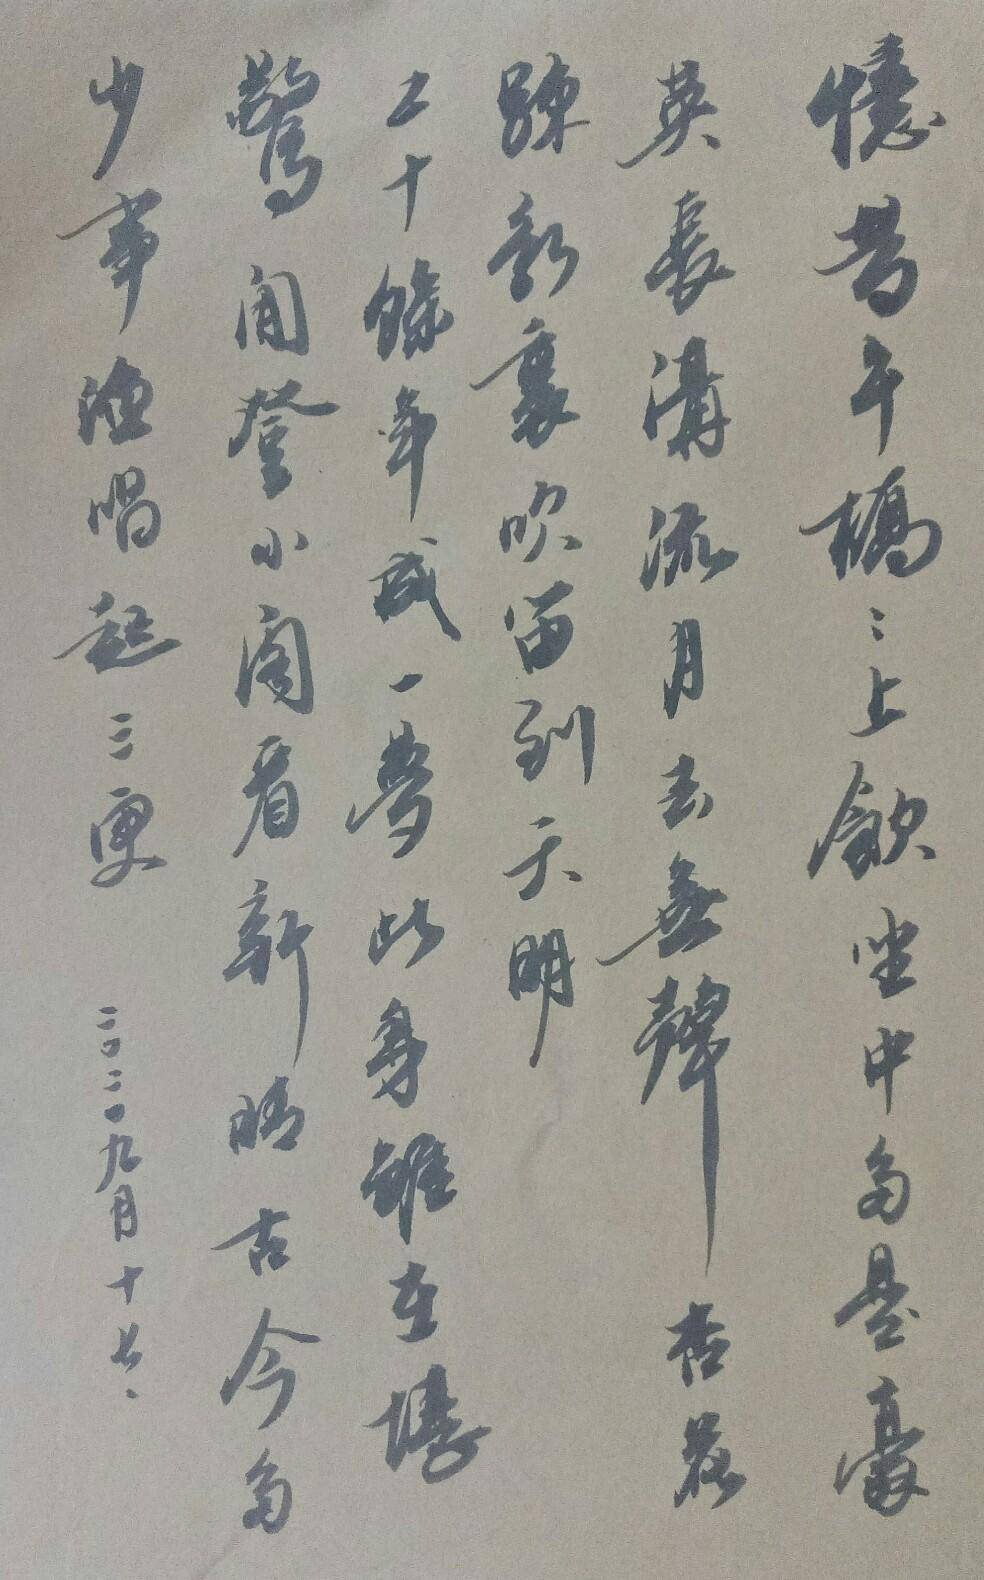 憶昔午橋〻上飲坐中多是豪
英長溝流月去無聲杏花
疎影裏吹笛到天明
二十餘年成一夢此身雖在堪
驚閒登小閣看新晴古今多
少事漁唱起三更
二〇二一九月十七、